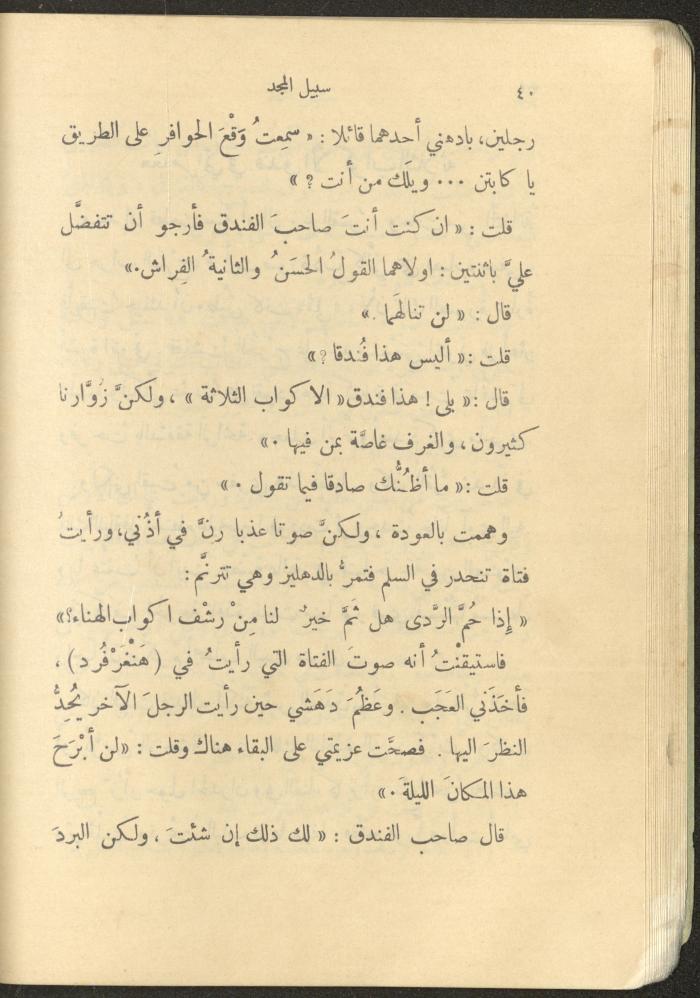 ٤٠
سبيل المجد
رجلين، بادهني أحدهما قائلا : « سمِعتُ وَقْعَ الحوافر على الطريق
يا كابتن ... ويلَك من أنت ؟ »
قلت : « ان كنت أنتَ صاحبَ الفندق فأرجو أن تتفضَّل
عليَّ باثنتين : اولاهما القولُ الحسَنُ والثانيةُ الفِراش.»
قال : « لن تنالَهما .»
قلت :« أليس هذا فُندقا ؟»
قال :« بلى ! هذا فندق « الاكواب الثلاثة » ، ولكنَّ زُوَّارنا
كثيرون ، والغرف غاصَّة بمن فيها .»
قلت :« ما أظُنُّك صادقا فيما تقول .»
وهممت بالعودة ، ولكنَّ صوتا عذبا رنَّ في أذُني، ورأيتُ
فتاة تنحدر في السلم فتمرُّ بالدهليز وهي تترنَّم :
« إِذا حُمَّ الرَّدى هل ثَمَّ خيرٌ لنا مِنْ رشْف اكواب الهناء؟»
فاستيقنْتُ أنه صوتَ الفتاة التي رأيتُ في (هَنْغَرْفُرد) ،
فأخَذَني العَجَب . وعَظُمَ دَهَشي حين رأيت الرجلَ الآخر يُحِدُّ
النظرَ اليها . فصحَّت عزيمتي على البقاء هناك وقلت : «لن أبْرَحَ
هذا المكانَ الليلةَ .»
قال صاحب الفندق : « لك ذلك إن شئتَ ، ولكن البردَ